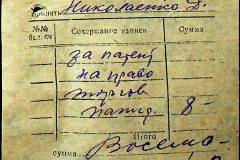 Принять Николаенко Д.
№№ бал. сч. Содержание записи Сумма
за патент
на право
торгов.
8-
Итого
сумма Восемь